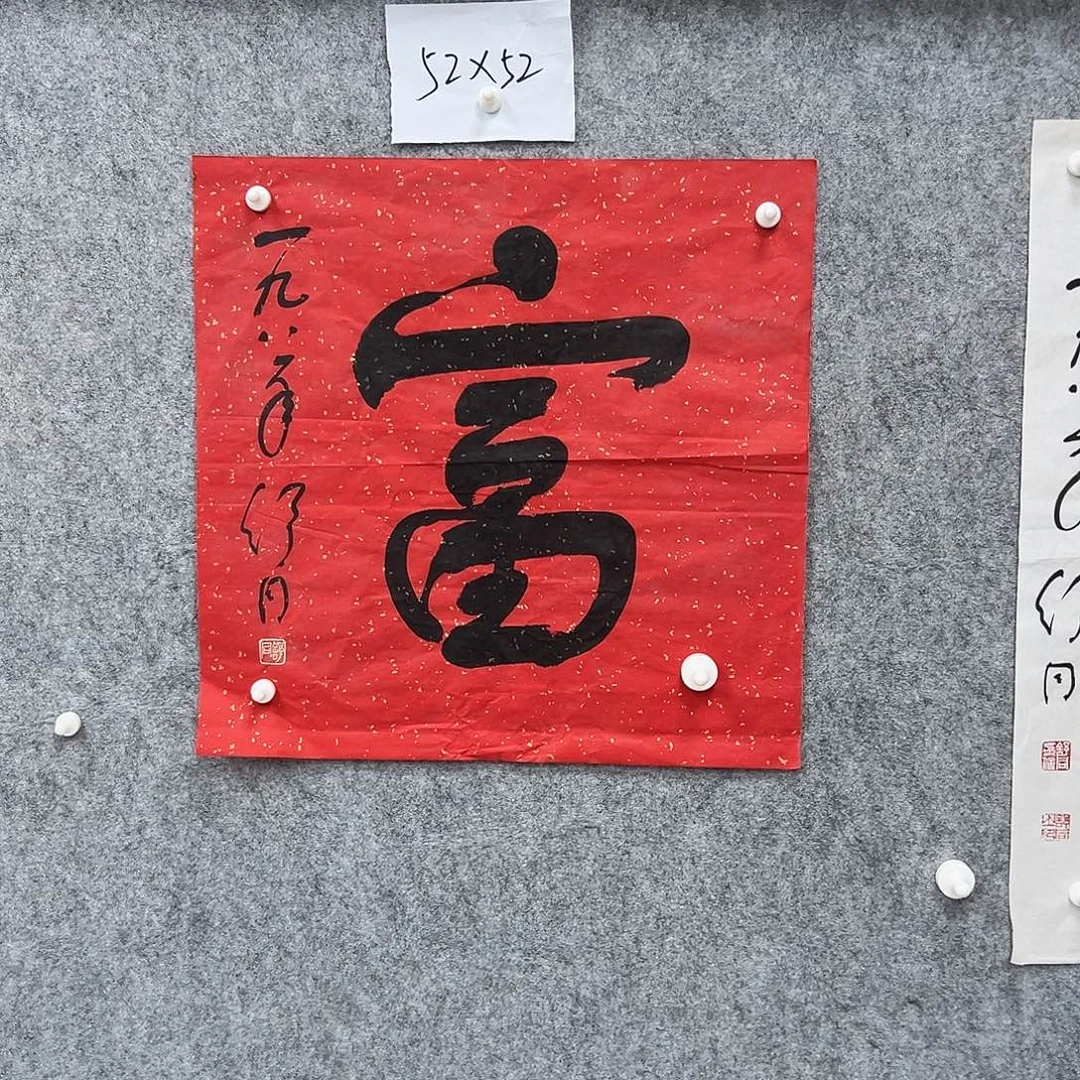 52X52
富
一九八年
舒同
舒同
舒同